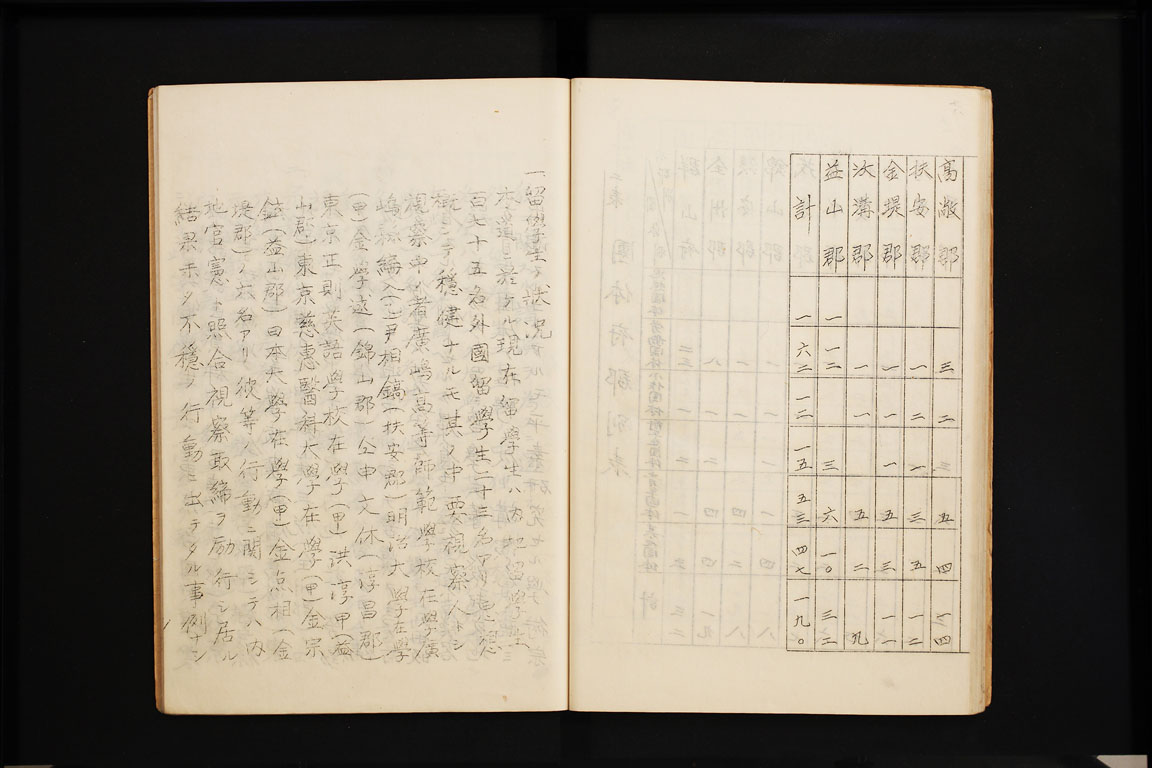 高敞郡 三 二 五 四 一四
扶安郡 一 二 一 三 五 一二
金堤郡 一 一 一 五 三 一一
沃溝郡 一 一 五 二 九
益山郡 一 一二 三 六 一〇 三二
計 一 六二 一二 一五 五三 四七 一九〇
一留學生ノ狀況
本道ニ於ケル現在留學生ハ內地留學生三
百七十五名外國留學生二十三名アリ思想
概シテ穩健ナルモ其ノ中要視察人トシ
視察中ノ者廣嶋高等師範學校在學廣
嶋編入(乙)尹相鎬(扶安郡)明治大學在學
(甲)金學遠(錦山郡)仝申文休(淳昌郡)
東京正則英語學校在學(甲)洪淳甲(益
山郡)東京慈惠醫科大學在學(甲)金宗
鉉(益山郡)日本大學在學(甲)金点相(金
堤郡)ノ六名アリ彼等ノ行動ニ關シテハ內
地官憲ト照合視察取締ヲ励行シ居ル
結果未タ不穩ノ行動ニ出テタル事例ナシ